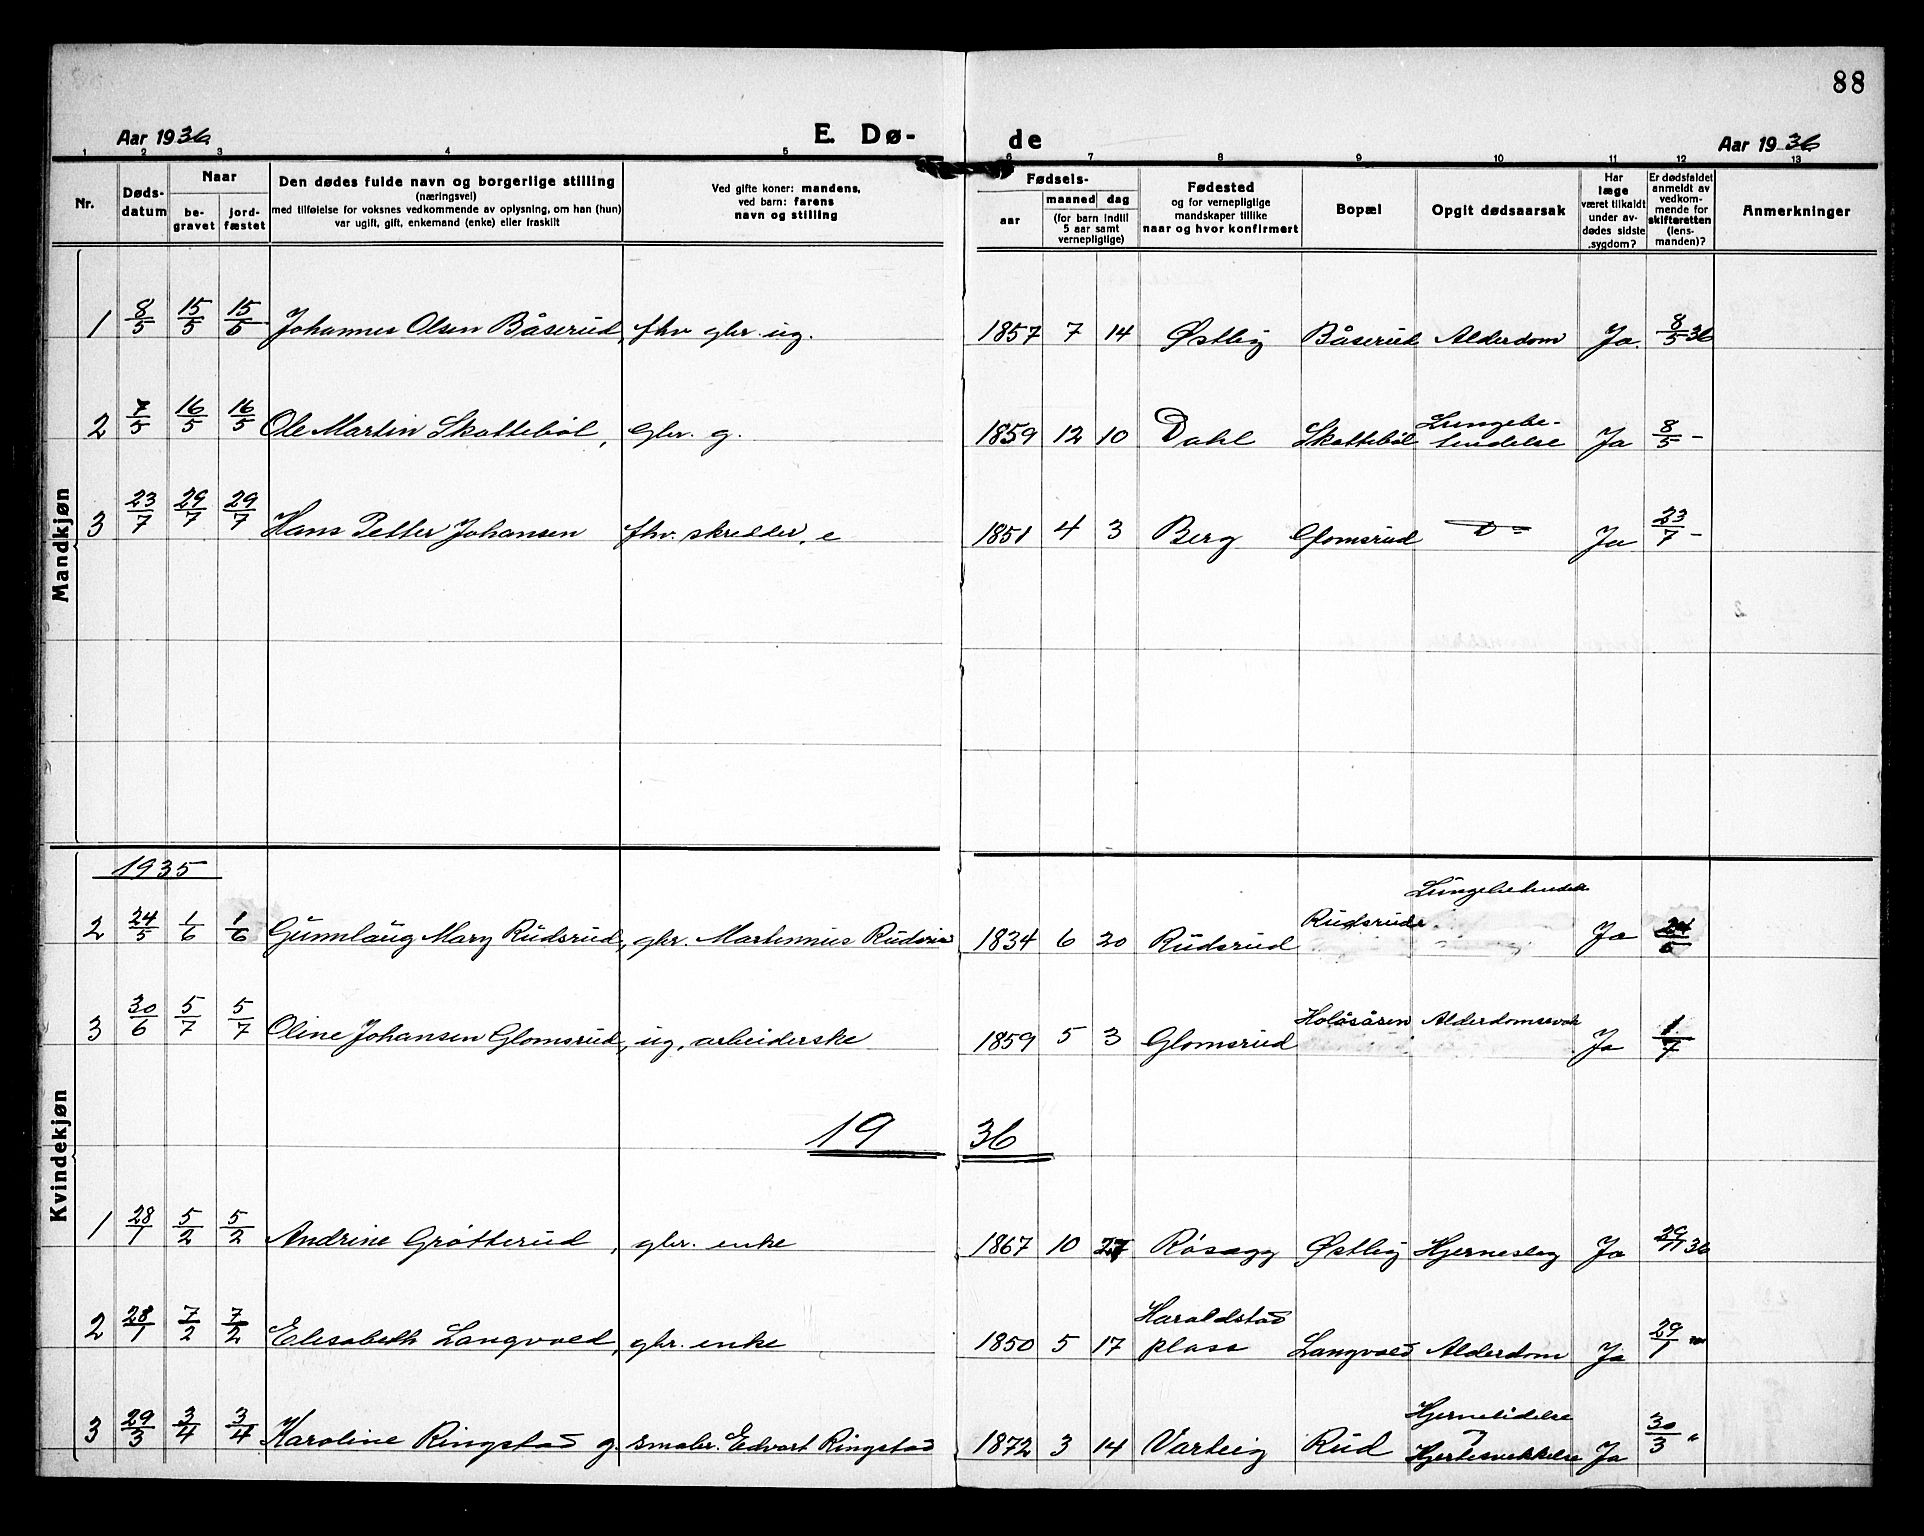 88
Aar 1936
E. Dø-
de
Aar 1936
1 2 3 4 5 6 7 8 9 10 11 12 13
Nr.
Døds-
datum
Naar
be-
gravet
jord-
fæstet
Den dødes fulde navn og borgerlige stilling
(næringsvei)
med tilføielse for voksnes vedkommende av oplysning, om han (hun)
var ugift, gift, enkemand (enke) eller fraskilt
Ved gifte koner: mandens,
ved barn: farens
navn og stilling
Fødsels-
aar
maaned dag
(for barn indtil
5 aar samt
vernepligtige)
Fødested
og for vernepligtige
mandskaper tillike
naar og hvor konfirmert
Bopæl
Opgit dødsaarsak
Har
læge
været tilkaldt
under av-
dødes sidste
sygdom?
Er dødsfaldet
anmeldt av
vedkom-
mende for
skifteretten
(lens-
manden)?
Anmerkninger
Mandkjøn
1 8/5 15/5 15/5 Johannes Olsen Båserud, fhv. gbr. ug. 1857 7 14 Østby Båserud Alderdom Ja. 8/5 36
2 7/5 16/5 16/5 Ole Martin Skattebøl, gbr. g. 1859 12 10 Dahl Skattebøl Lungebe-
tendelse Ja 8/5 -
3 23/7 29/7 29/7 Hans Petter Johansen fhv. skredder, e 1851 4 3 Berg Glomsrud D= Ja 23/7 -
Kvindekjøn
1935
2 24/5 1/6 1/6 Gunnlaug Mary Rudsrud, gbr. Martinnius 1834 6 20 Rudsrud Rudsrud Ja
3 30/6 5/7 5/7 Oline Johansen Glomsrud, ug, arbeiderske 1859 5 3 Glomsrud Holåsåsen Ja 1/7
1936
1 28/1 5/2 5/2 Andrine Grótterud, gbr. enke 1867 10 27 Røsægg Østby Hjerneslag Ja 29/1 36
2 28/1 7/2 7/2 Elisabeth Langvold, gbr. enke 1850 5 17 Haraldstad
plass Langvold Alderdom Ja 29/1 "
3 29/3 3/4 3/4 Karoline Ringstad g. smabr. Edvart Ringstad 1872 3 14 Varteig Rud Hjernelidelse
Hjertesvekkelse Ja 30/3 "